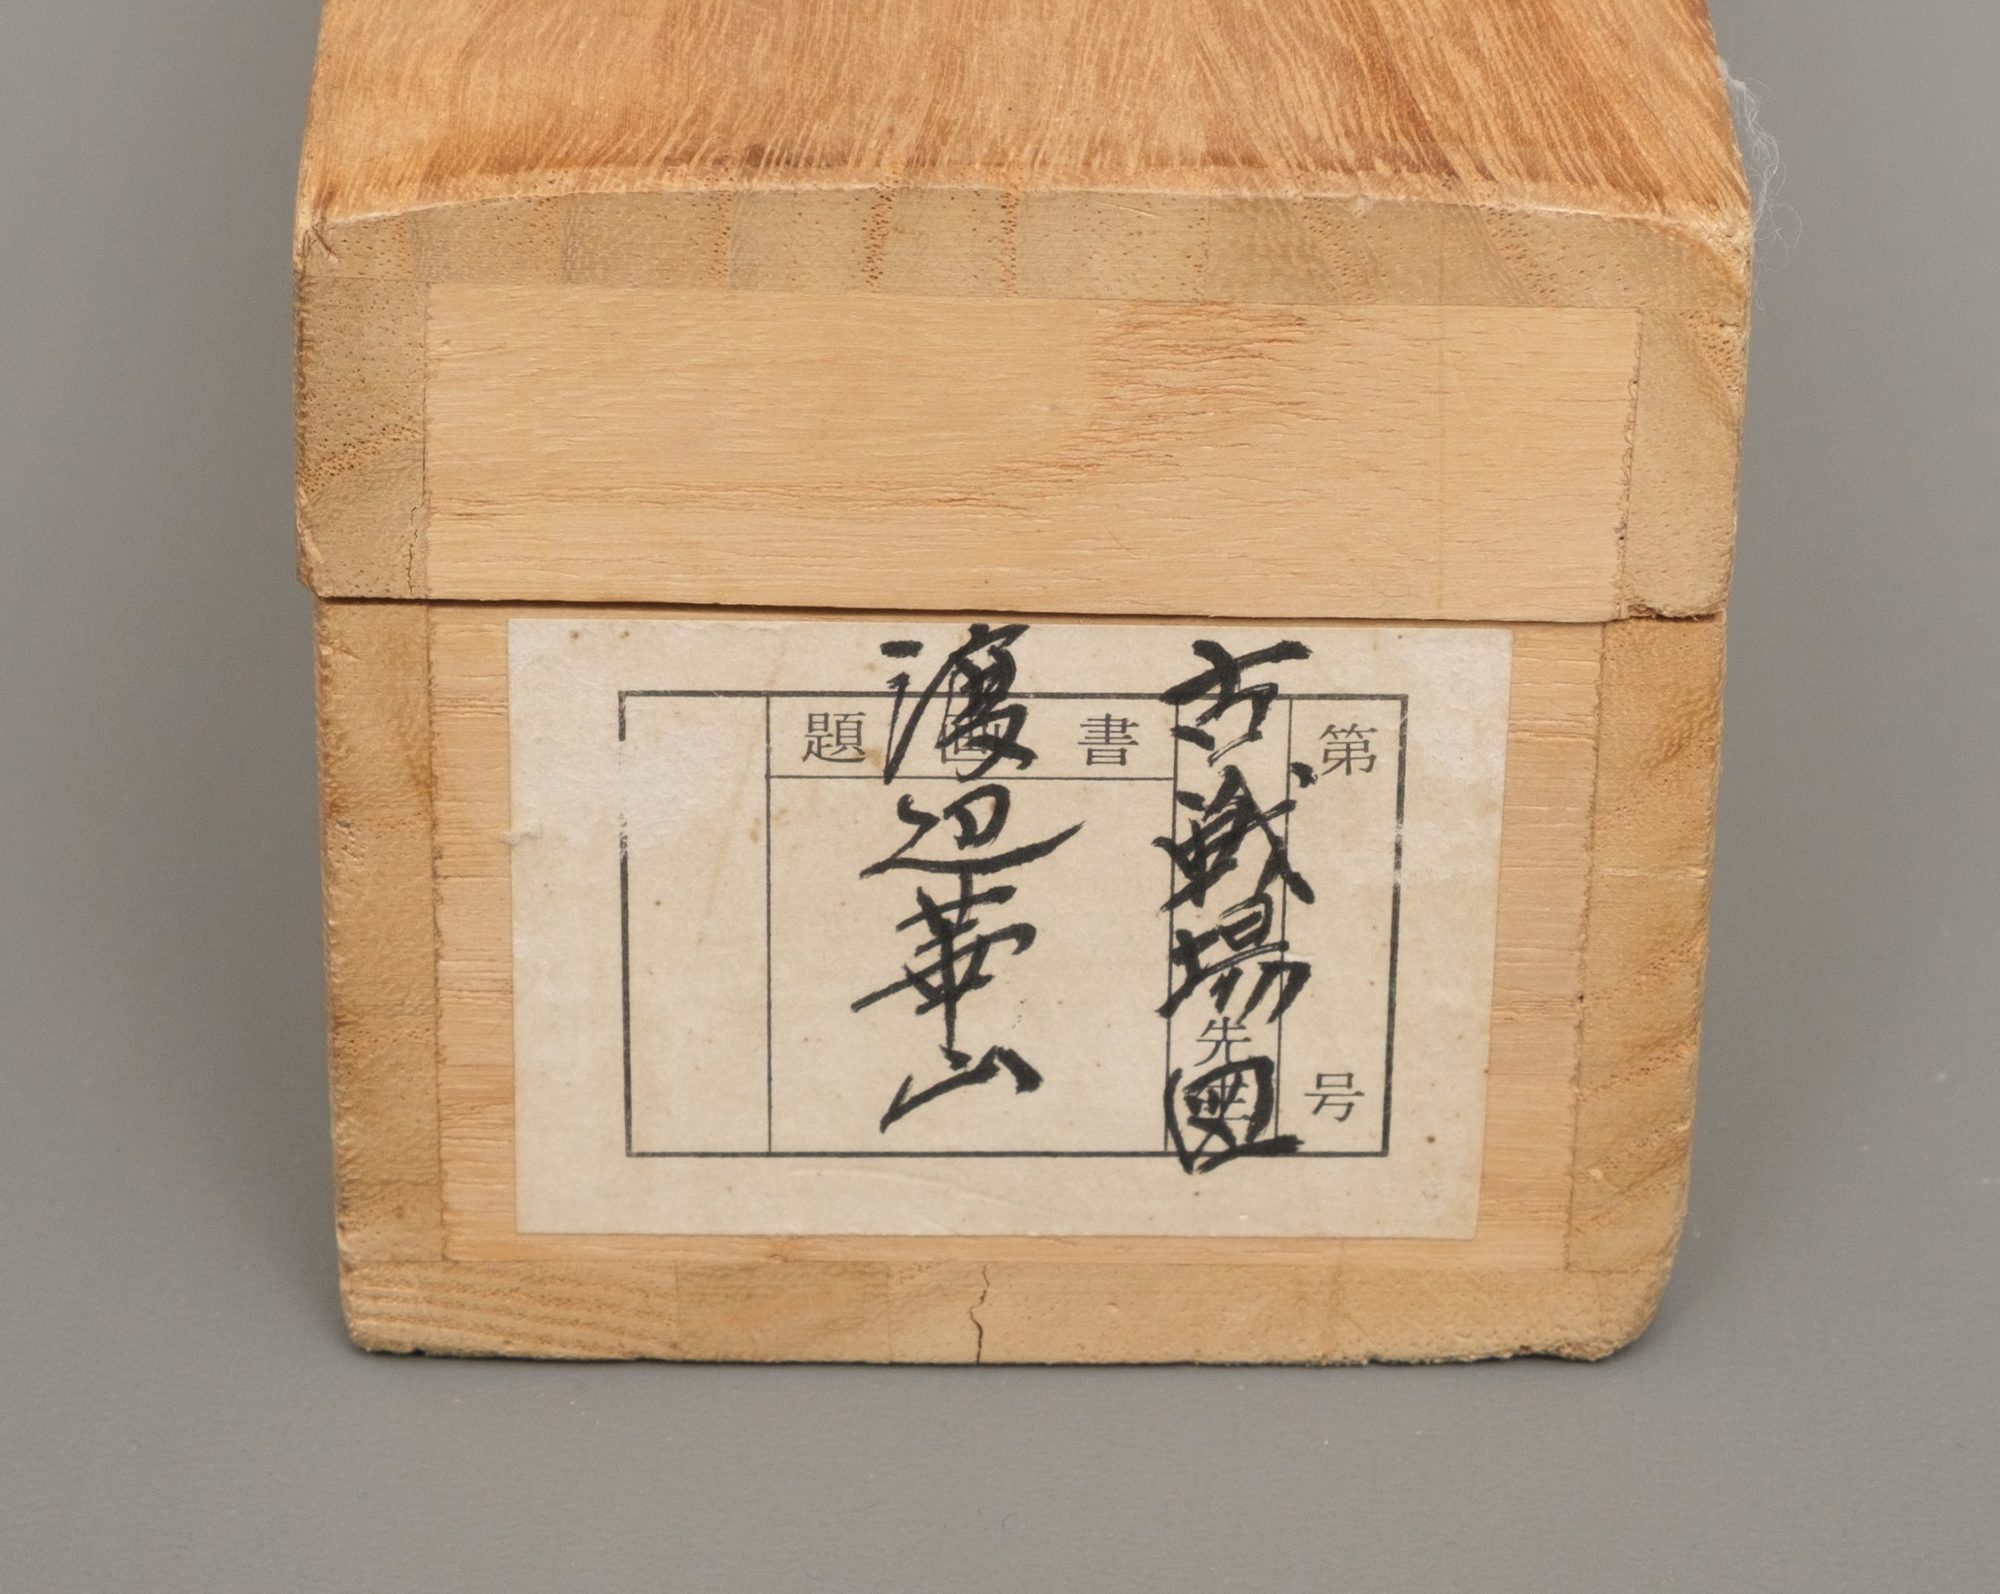 第 号
古戦場図
先生
書画題
渡辺華山